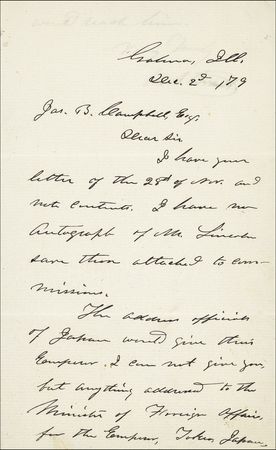 Galena, Ill.
Dec. 2d, /79
Jas. B. Campbell, Esq.
Dear Sir
I have your
letter of the 28th of Nov. and
note contents. I have no
Autograph of Mr. Lincoln
save those attached to com-
missions.
The address officials
of Japan would give their
Emperor I can not give you
but anything addressed to the
Minister of Foreign Affairs,
for the Emperor, Tokio, Japan,